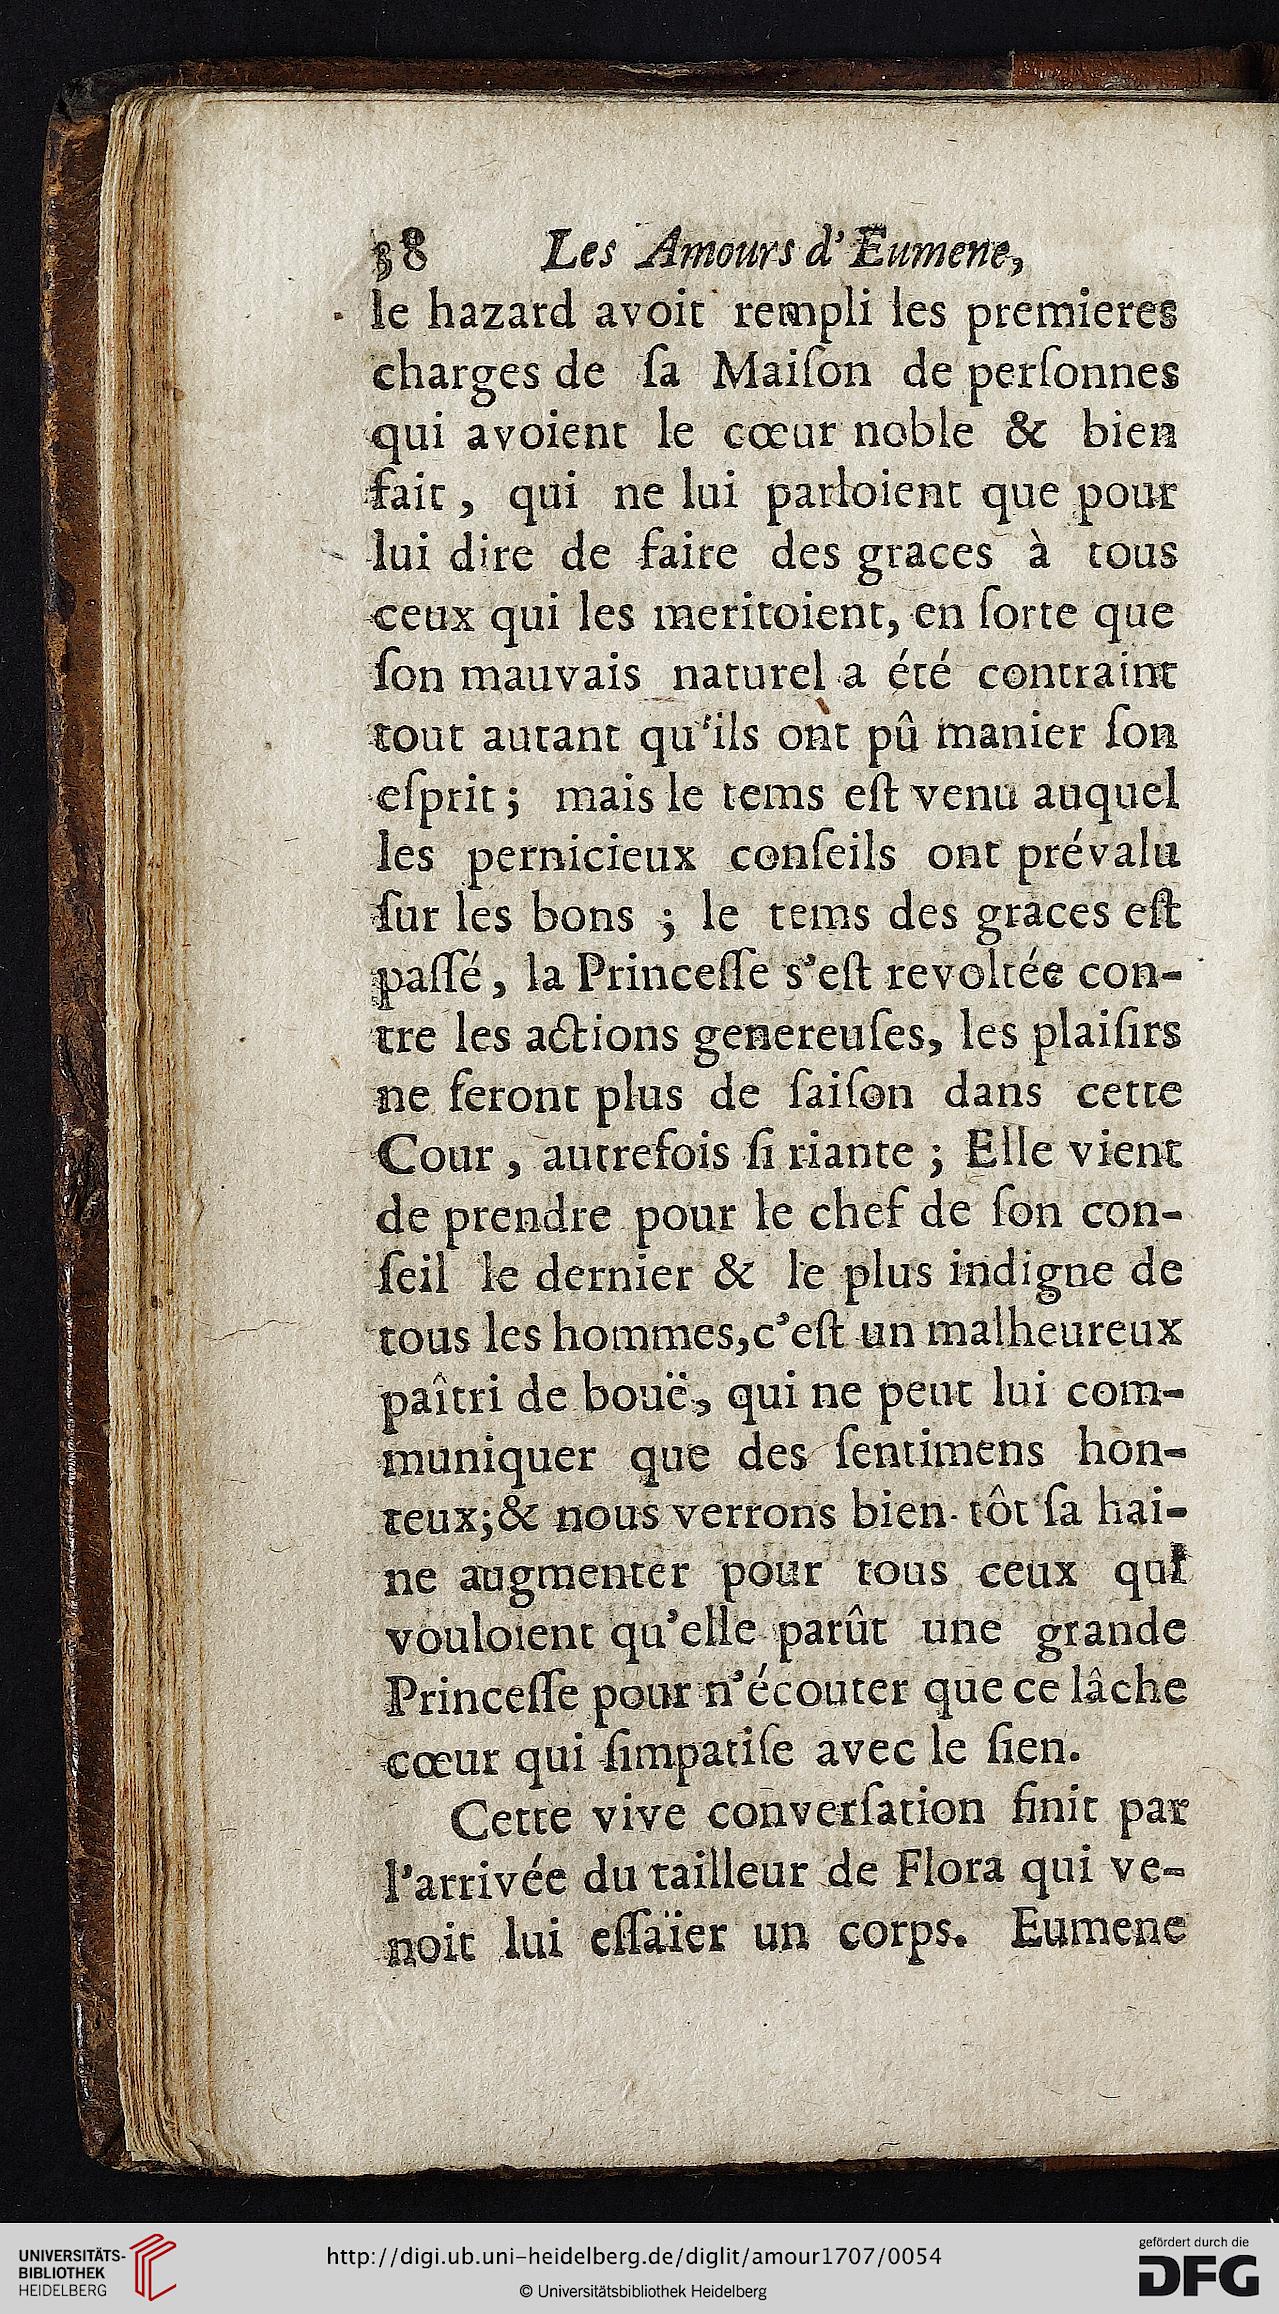 38 Les Amours d'Eumene,
le hazard avoit rempli les premieres
charges de ſa Maiſon de perſonnes
qui avoient le cœur noble & bien
fait, qui ne lui parloient que pour
lui dire de faire des graces à tous
ceux qui les meritoient, en ſorte que
ſon mauvais naturel a été contraint
tout autant qu'ils ont pû manier ſon
eſprit; mais le tems eſt venu auquel
les pernicieux conſeils ont prévalu
ſur les bons ; le tems des graces eſt
paſſé, la Princeſſe s'eſt revoltée con-
tre les actions genereuſes, les plaiſirs
ne feront plus de ſaiſon dans cette
Cour, autrefois ſi riante ; Elle vient
de prendre pour le chef de ſon con-
ſeil le dernier & le plus indigne de
tous les hommes, c'eſt un malheureux
paîtri de bouë, qui ne peut lui com-
muniquer que des ſentimens hon-
teux; & nous verrons bien-tôt ſa hai-
ne augmenter pour tous ceux qui
vouloient qu'elle parût une grande
Princeſſe pour n'écouter que ce lâche
cœur qui ſimpatiſe avec le ſien.
Cette vive converſation finit par
l'arrivée du tailleur de Flora qui ve-
noit lui eſſaïer un corps. Eumene
UNIVERSITÄTS-
BIBLIOTHEK
HEIDELBERG
http://digi.ub.uni-heidelberg.de/diglit/amour1707/0054
© Universitätsbibliothek Heidelberg
gefördert durch die
DFG